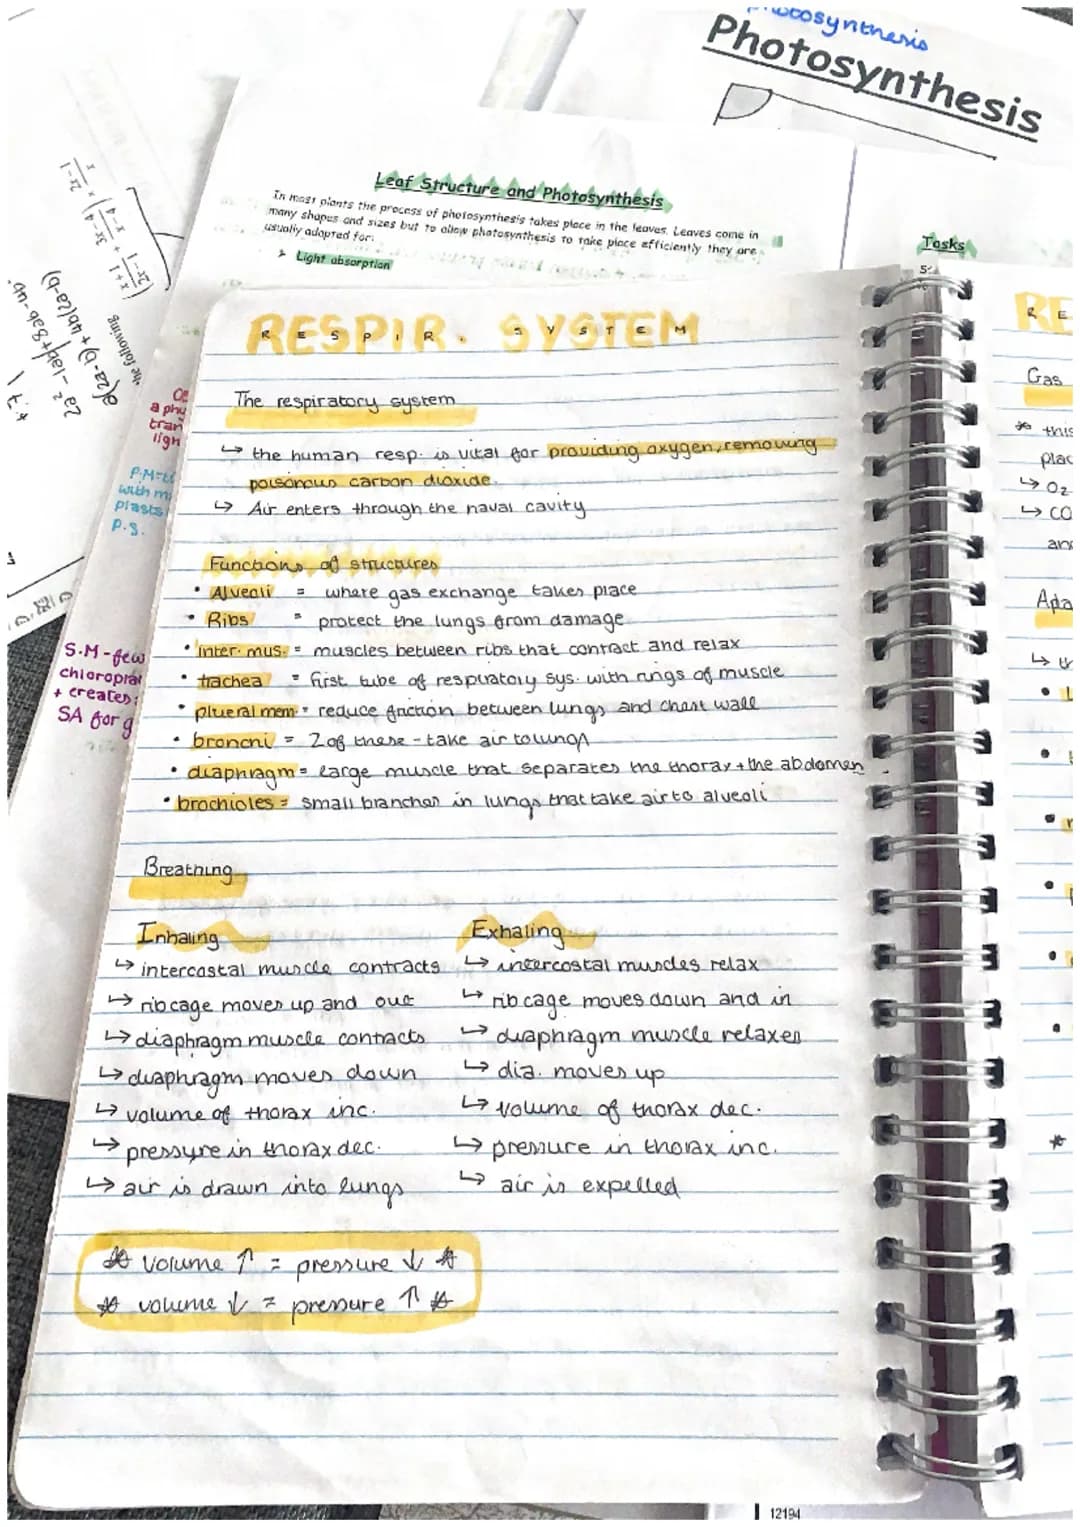 photosynthesis
Photosynthesis
Leaf Structure and Photosynthesis
In most plants the process of photosynthesis takes place in the leaves. Leaves come in
many shapes and sizes but to allow photosynthesis to take place efficiently they are
usually adapted for:
➤ Light absorption
Tasks
RESPIR. SYSTEM
The respiratory system
↳ the human resp. is vital for providing oxygen, removing
poisonous carbon dioxide.
↳ Air enters through the naval cavity
Functions of structures
• Alveoli = where gas exchange takes place
• Ribs = protect the lungs from damage
• inter. mus. = muscles between ribs that contract and relax
• trachea = first tube of respiratory sys. with rings of muscle
• plueral mem. = reduce friction between lungs and chest wall
• bronchi = 2 of these - take air to lungs
• diaphragm = large muscle that separates the thorax + the abdomen
• brochioles = small branches in lungs that take air to alveoli
Breathing
Inhaling
↳ intercostal muscle contracts
↳ ribcage moves up and out
↳ diaphragm muscle contracts
↳ diaphragm moves down
↳ volume of thorax inc.
↳ pressure in thorax dec.
↳ air is drawn into lungs
Exhaling
↳ intercostal muscles relax
↳ rib cage moves down and in
↳ diaphragm muscle relaxes
↳ dia. moves up
↳ volume of thorax dec.
↳ pressure in thorax inc.
↳ air is expelled
☆ volume ↑ = pressure ↓ ☆
☆ volume ↓ = pressure ↑ ☆
a phy
tran
ligh
with m
P.S.
S.M - few
+ creates
SA for g
the following
RE
Gas
* this
plac
↳ O2
↳ CO
and
Ada
12194